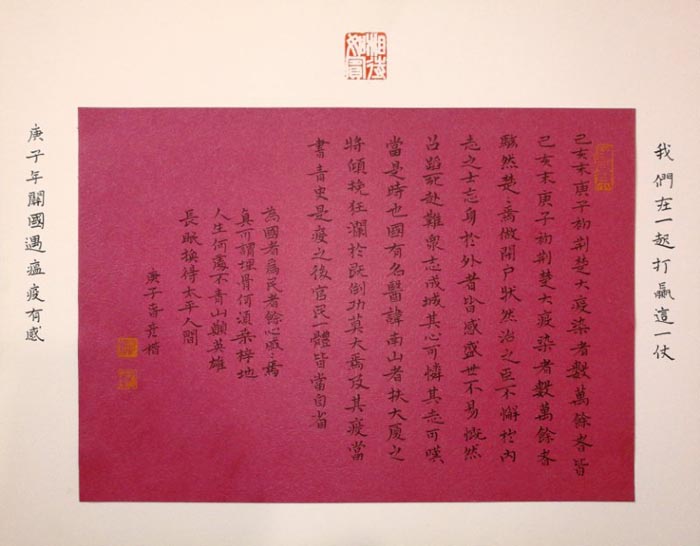 我們在一起打贏這一仗
己亥末庚子初荊楚大疫染者數萬餘者皆
己亥末庚子初荊楚大疫染者數萬餘者
然楚〻焉做閉户狀然治之臣不懈於內
志之士忘身於外者皆感盛世不易慨然
召蹈死赴難眾志成城其心可憐其志可嘆
當是時也國有名醫諱南山者扶大廈之
將傾挽狂瀾於既倒功莫大焉及其疫當
書青史是疫之後官民一體皆當自省
為國者為民者餘心慼〻焉
真可謂埋骨何須桑梓地
人生何處不青山顧英雄
長眠換得太平人間
庚子楷
庚子年國遇瘟疫有感